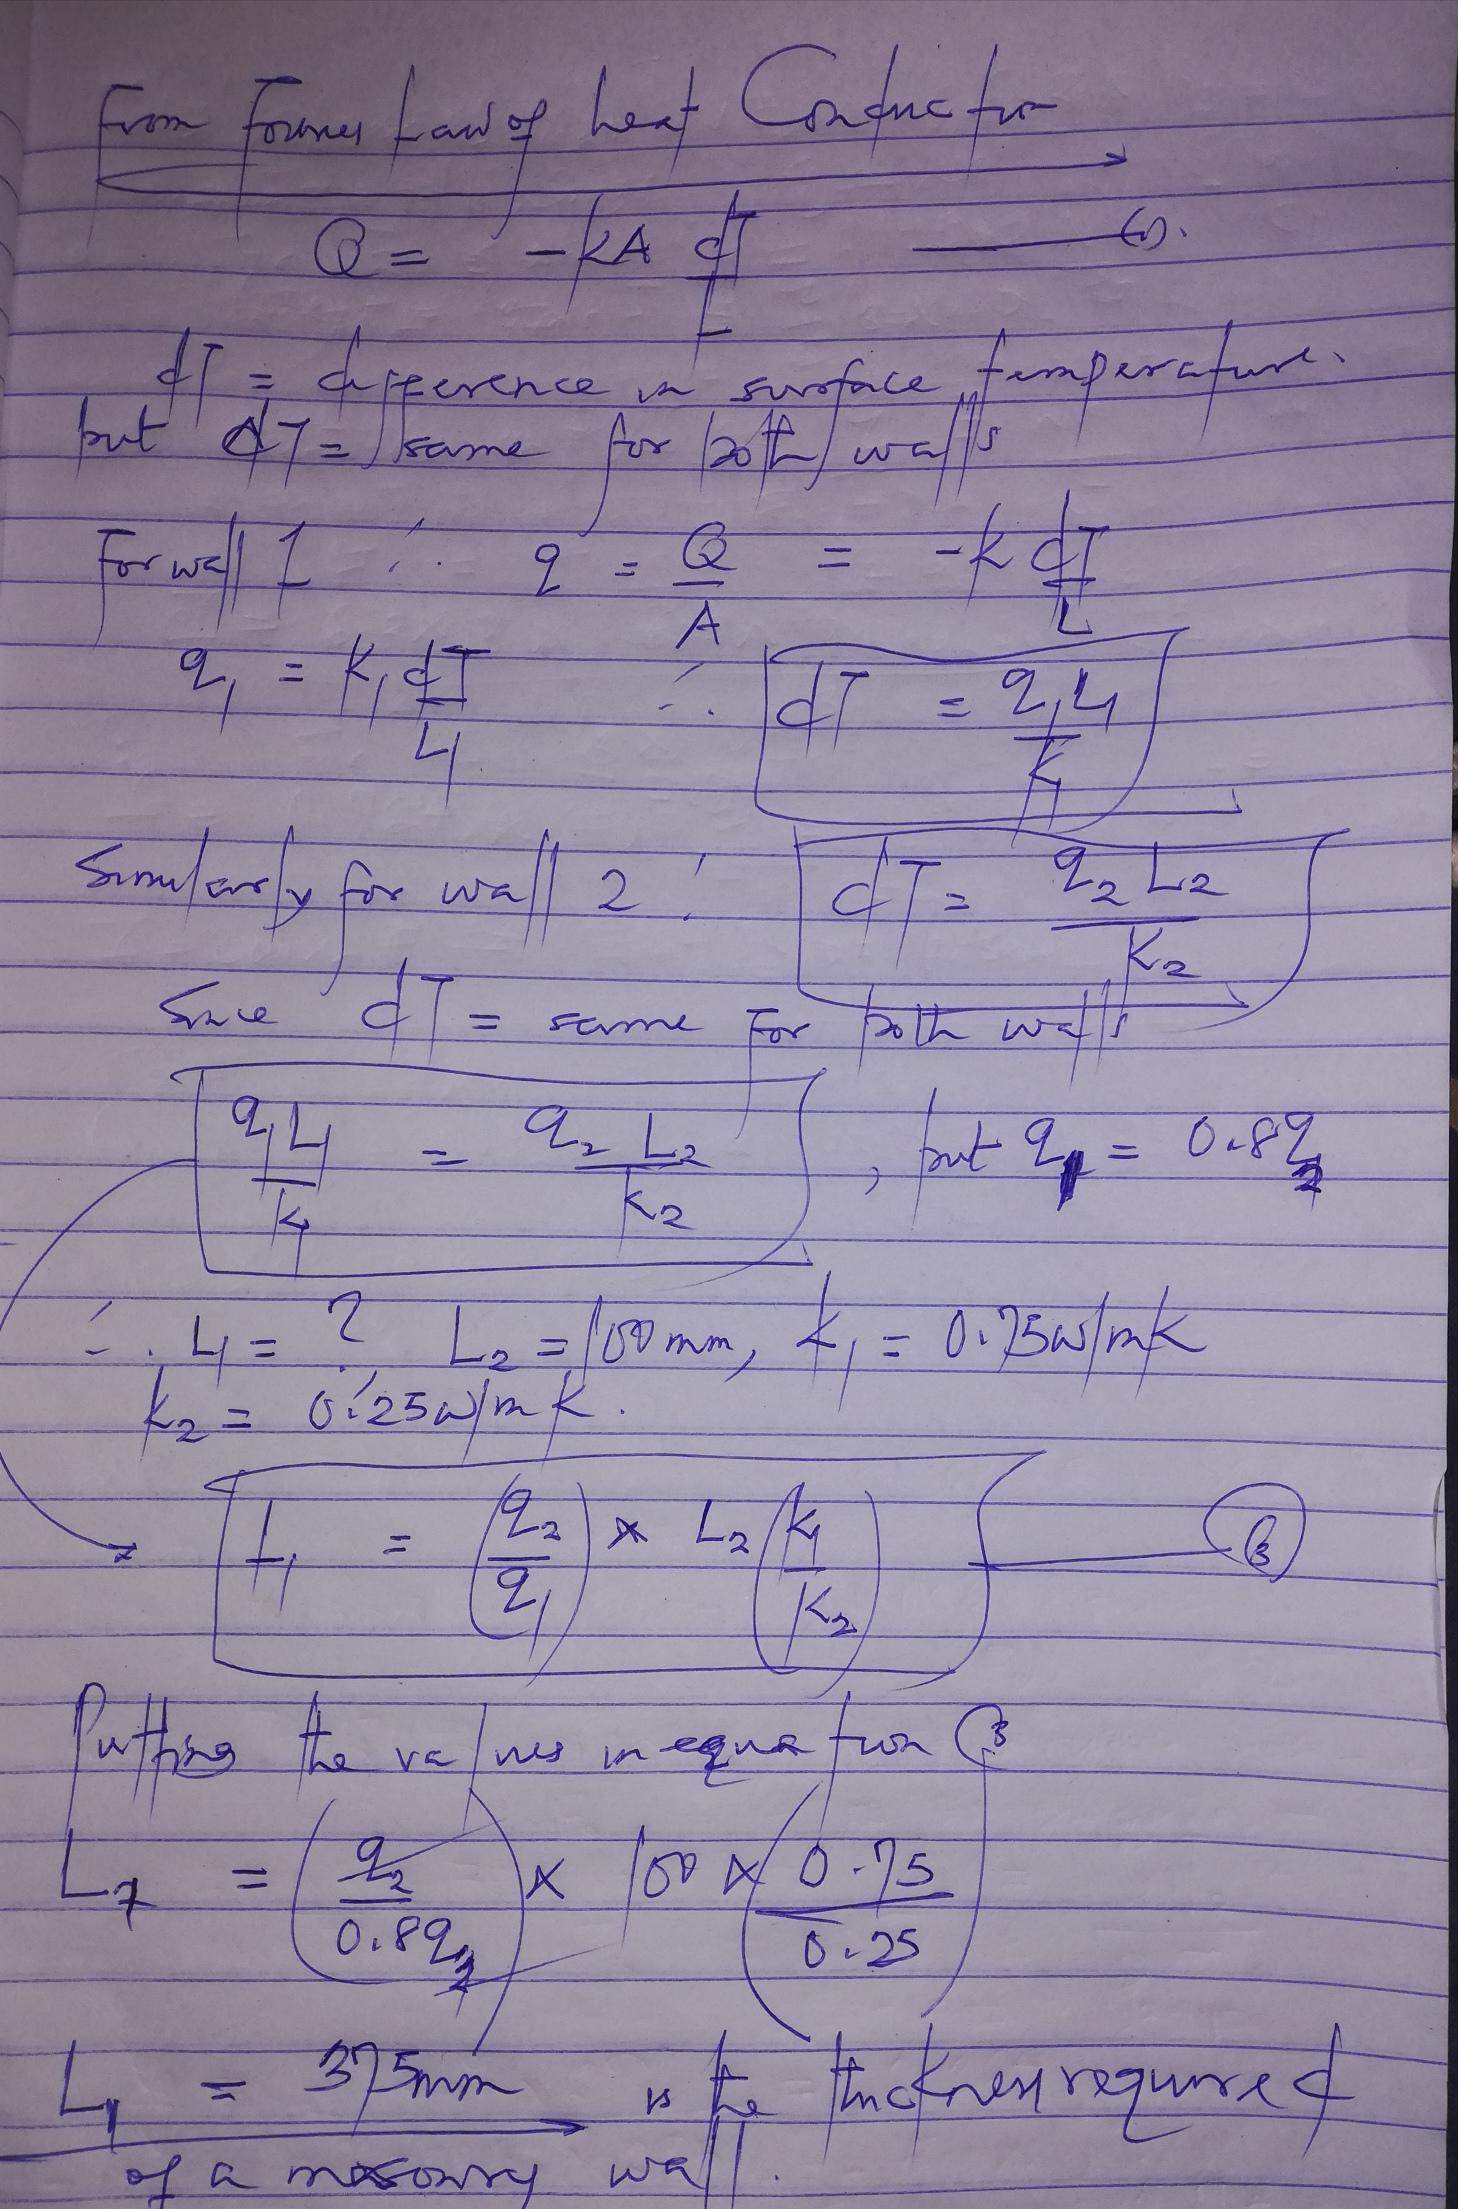 From Fourier Law of heat Conduction
Q = -kA dT/L (1).
dT = difference in surface temperature.
but dT = same for both walls
For wall 1 ∴ q = Q/A = -k dT/L
q₁ = K₁ dT/L₁ ∴ dT = q₁L₁/K₁
Similarly for wall 2 : dT = q₂ L₂/K₂
Since dT = same For both walls
q₁L₁/K₁ = q₂ L₂/K₂ , but q₁ = 0.8q₂
∴ L₁ = ? L₂ = 100mm, k₁ = 0.75w/mk
k₂ = 0.25w/mk.
L₁ = (q₂/q₁) × L₂ (K₁/K₂) (3)
Putting the values in equation (3
L₁ = (q₂/0.8q₂) × 100 × (0.75/0.25)
L₁ = 375mm is the thickness required
of a masonry wall.